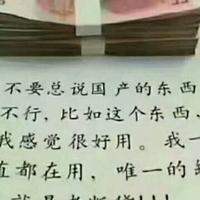 不要总说国产的东西
不行，比如这个东西，
我感觉很好用。我一
直都在用，唯一的